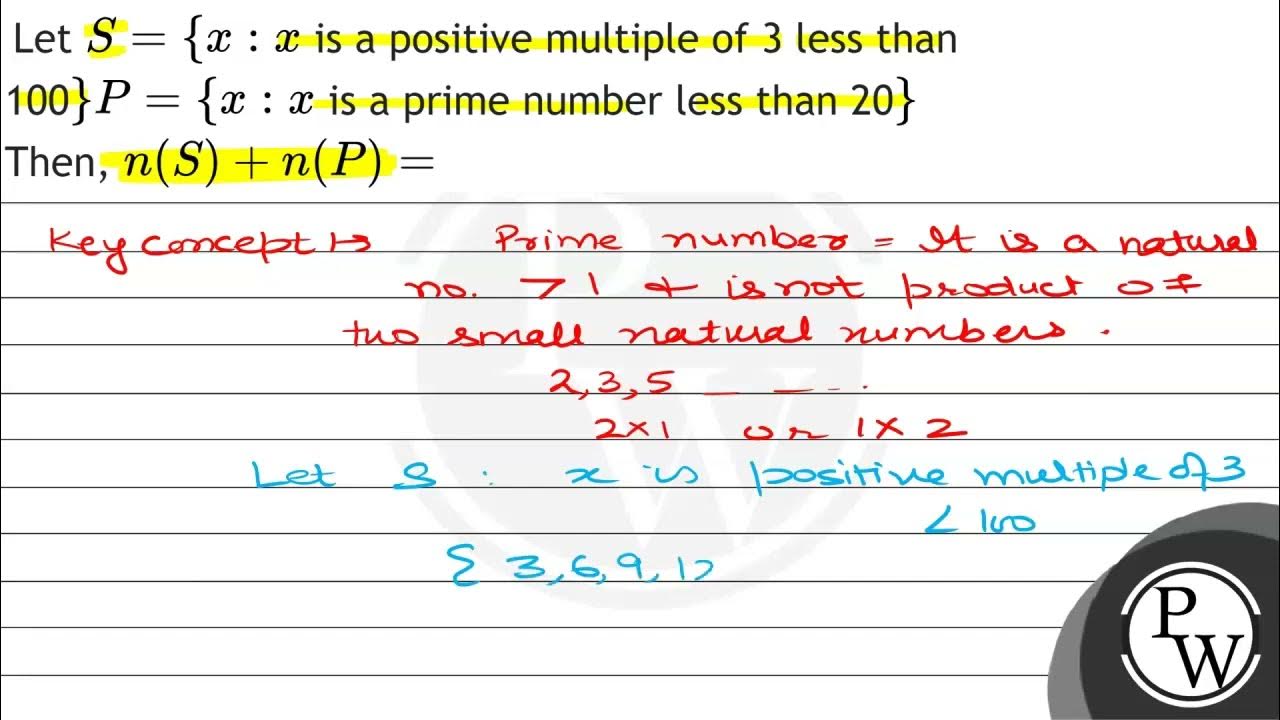 Let S = {x : x is a positive multiple of 3 less than
100}P = {x : x is a prime number less than 20}
Then, n(S) + n(P) =
Key concept ↦ Prime number = It is a natural
no. > 1 & is not product of
two small natural numbers .
2, 3, 5 _ _ ...
2×1 or 1×2
Let S : x is positive multiple of 3
< 100
{ 3, 6, 9, 1
PW
PW